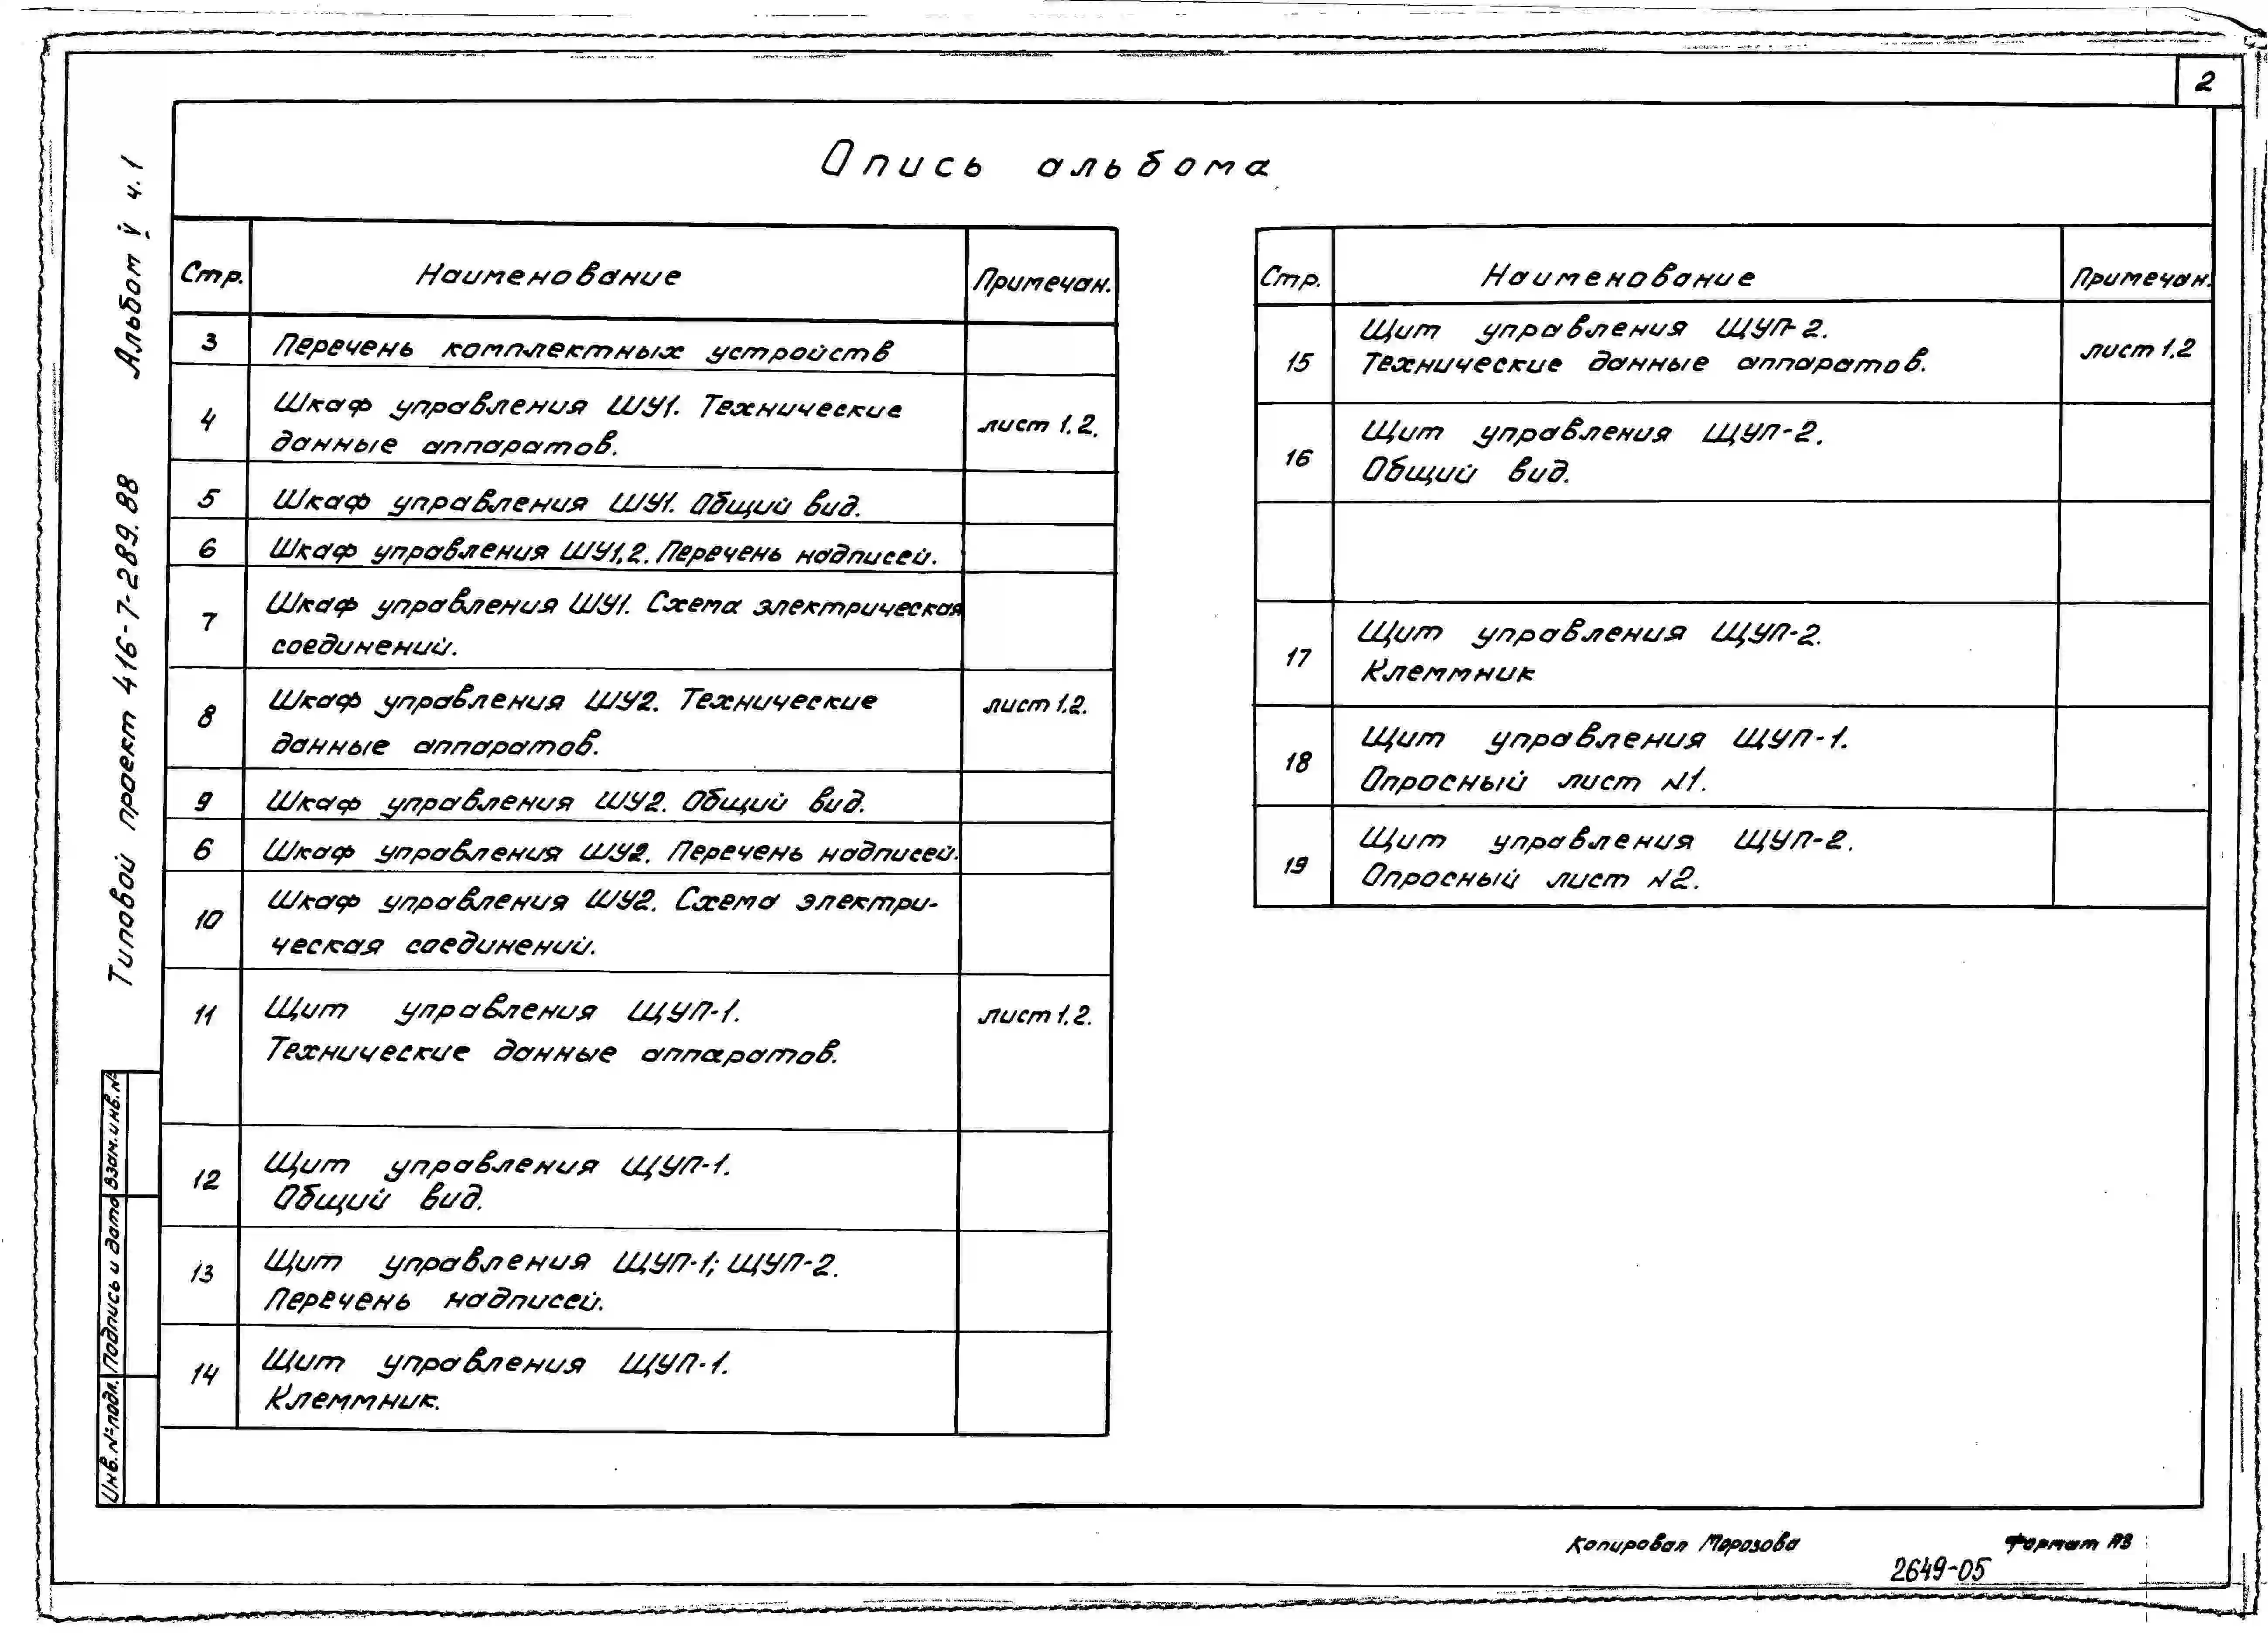 2
Опись альбома
Типовой проект 416-7-289.88 Альбом V ч.1
Стр. Наименование Примечан.
3 Перечень комплектных устройств
4 Шкаф управления ШУ1. Технические лист 1.2.
данные аппаратов.
5 Шкаф управления ШУ1. Общий вид.
6 Шкаф управления ШУ1,2. Перечень надписей.
7 Шкаф управления ШУ1. Схема электрическая
соединений.
8 Шкаф управления ШУ2. Технические лист 1.2.
данные аппаратов.
9 Шкаф управления ШУ2. Общий вид.
6 Шкаф управления ШУ2. Перечень надписей.
10 Шкаф управления ШУ2. Схема электри-
ческая соединений.
11 Щит управления ЩУП-1. лист 1.2.
Технические данные аппаратов.
12 Щит управления ЩУП-1.
Общий вид.
13 Щит управления ЩУП-1; ЩУП-2.
Перечень надписей.
14 Щит управления ЩУП-1.
Клеммник.
Стр. Наименование Примечан.
15 Щит управления ЩУП-2. лист 1.2
Технические данные аппаратов.
16 Щит управления ЩУП-2.
Общий вид.
17 Щит управления ЩУП-2.
Клеммник
18 Щит управления ЩУП-1.
Опросный лист N1.
19 Щит управления ЩУП-2.
Опросный лист N2.
Инв.№подл. Подпись и дата Взам.инв.№
Копировал Морозова Формат А3
2649-05